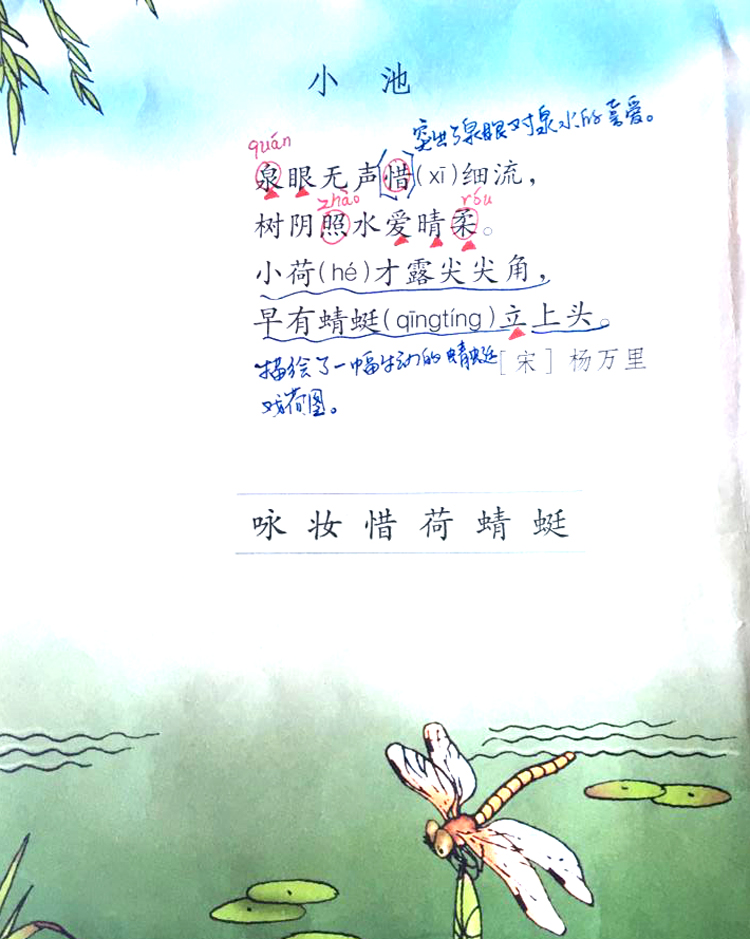 小池
突出了泉眼对泉水的喜爱。
quán
泉眼无声惜(xī)细流，
zhào róu
树阴照水爱晴柔。
小荷(hé)才露尖尖角，
早有蜻蜓(qīngtíng)立上头。
描绘了一幅生动的蜻蜓
[宋]杨万里
戏荷图。
咏妆惜荷蜻蜓